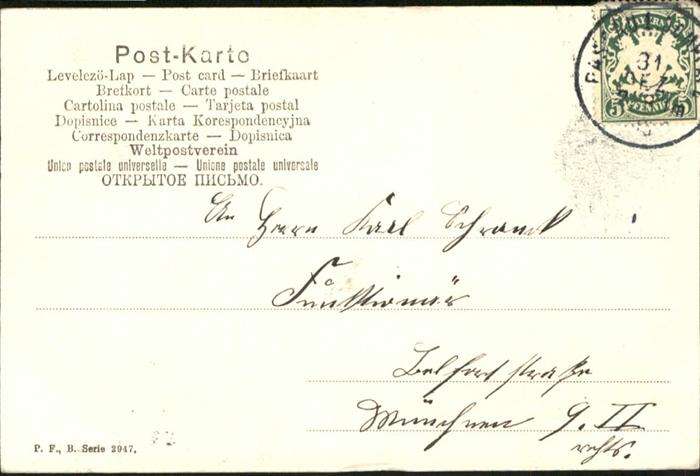 Post-Karte
Levelezö-Lap — Post card — Briefkaart
Brefkort — Carte postale
Cartolina postale — Tarjeta postal
Dopisnice — Karta Korespondencyjna
Correspondenzkarte — Dopisnica
Weltpostverein
Union postale universelle — Unione postale universale
ОТКРЫТОЕ ПИСЬМО.
31
DEZ
5
PFENNIG
An Herrn Karl Schranck
Funktionär
Belfortstraße
München 9. II
rechts.
P. F., B. Serie 2947.